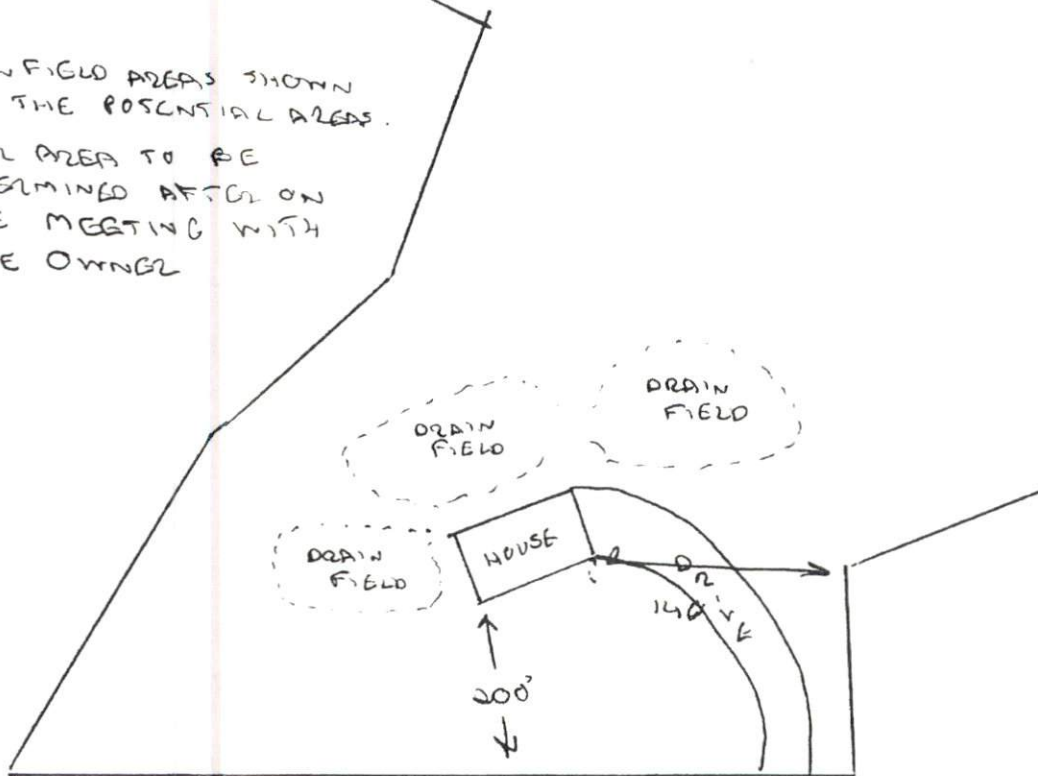 N FIELD AREAS SHOWN
THE POTENTIAL AREAS.
L AREA TO BE
ERMINED AFTER ON
E MEETING WITH
E OWNER
DRAIN
FIELD
DRAIN
FIELD
DRAIN
FIELD
HOUSE
DRIVE
140
200'